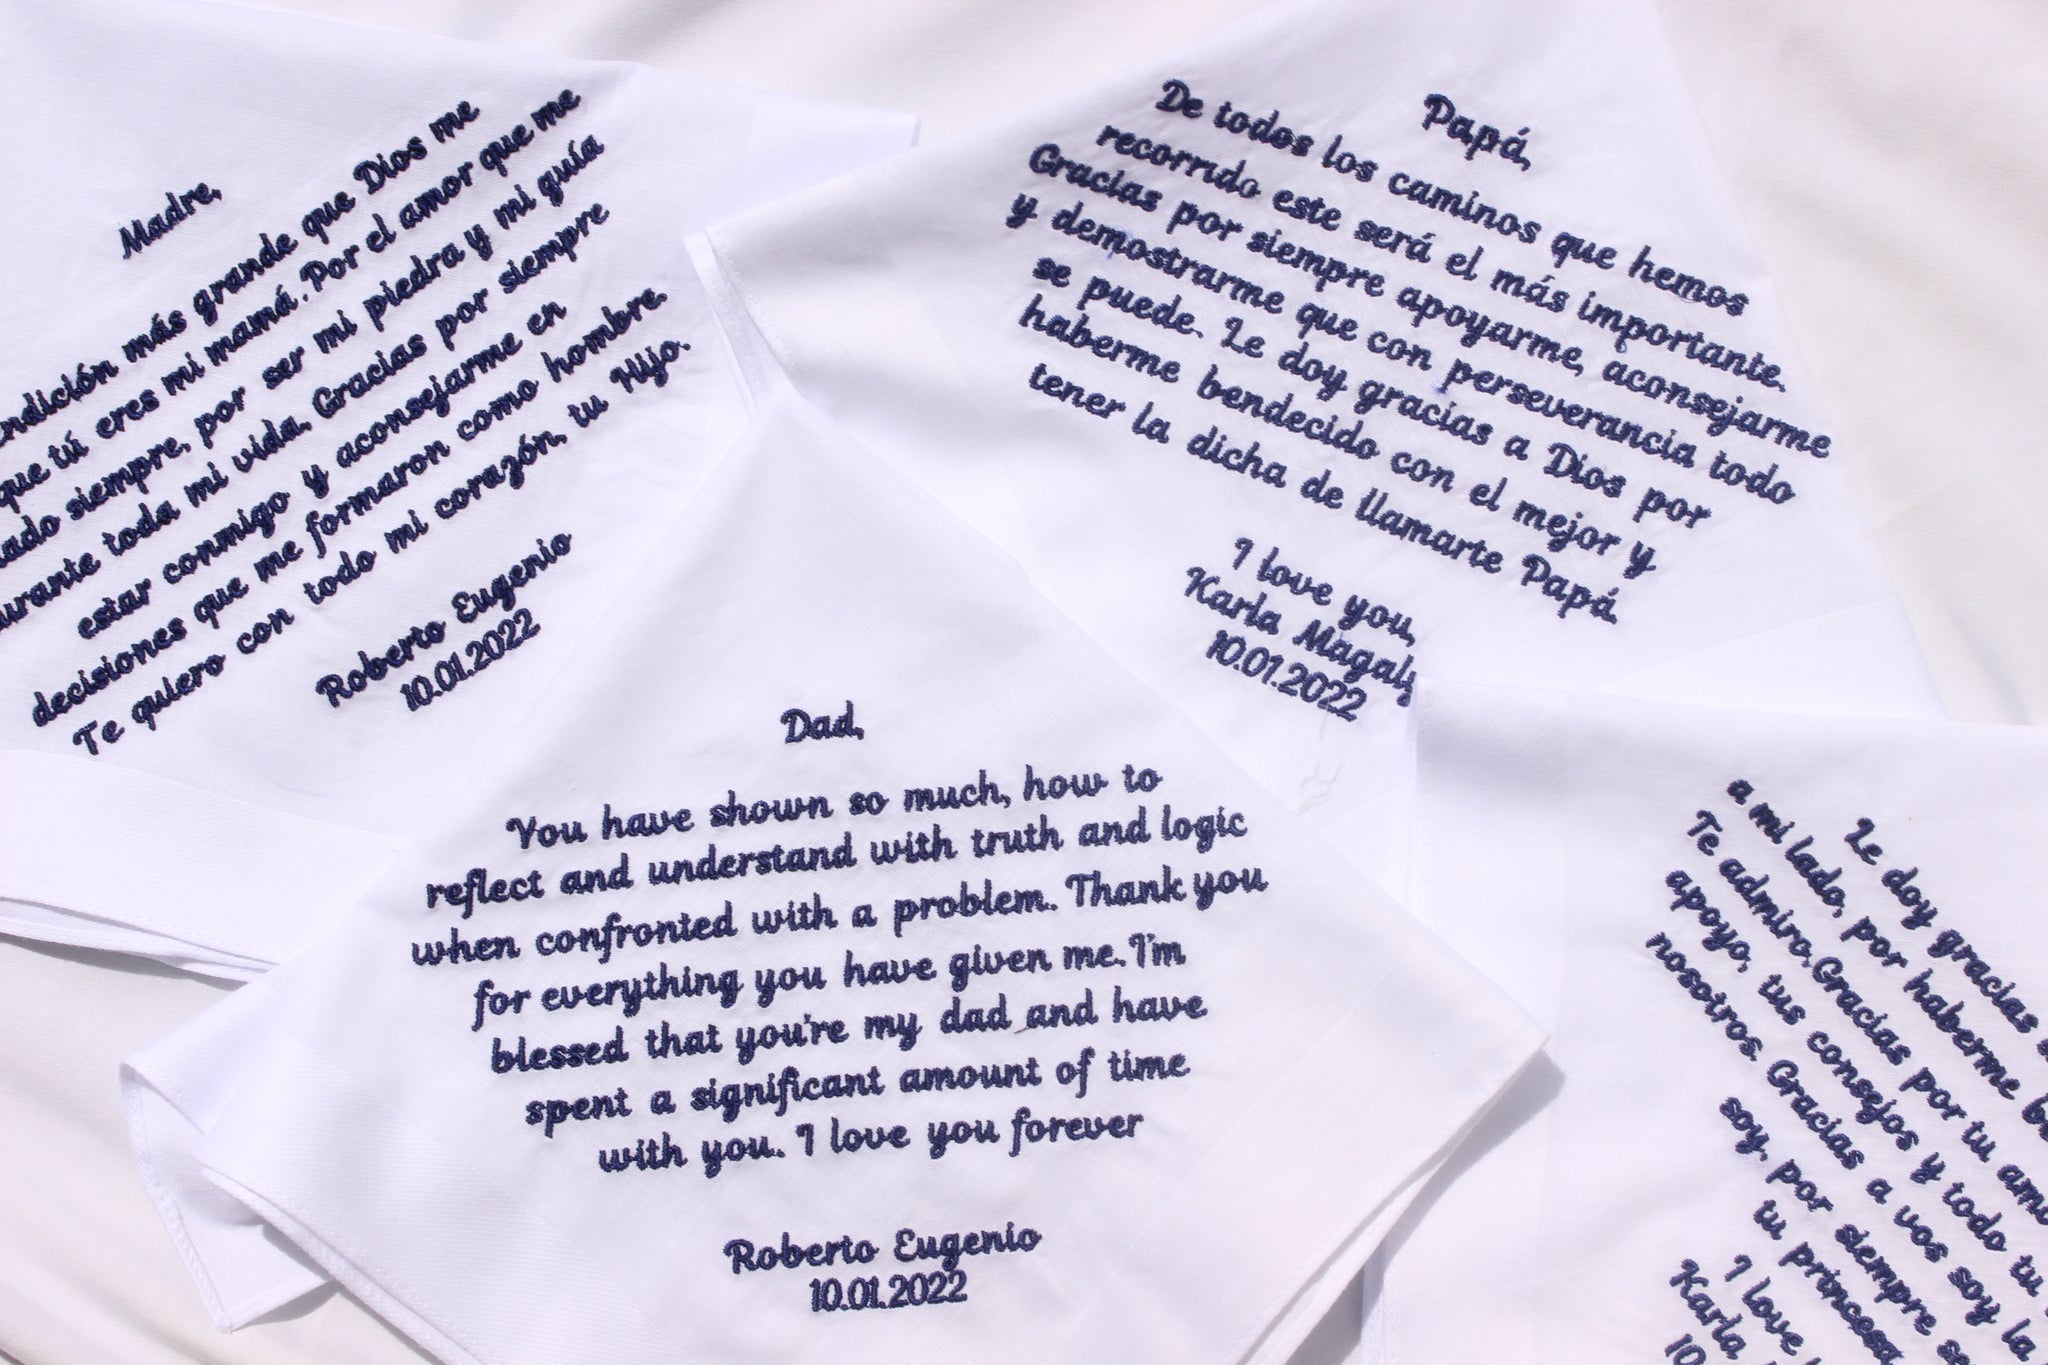 Madre,
más grande que Dios me
que tú eres mi mamá. Por el amor que me
siempre, por ser mi piedra y mi guía
toda mi vida. Gracias por siempre
estar conmigo y aconsejarme en
decisiones que me formaron como hombre.
Te quiero con todo mi corazón, tu Hijo.
Roberto Eugenio
10.01.2022
Papá,
De todos los caminos que hemos
recorrido este será el más importante.
Gracias por siempre apoyarme, aconsejarme
y demostrarme que con perseverancia todo
se puede. Le doy gracias a Dios por
haberme bendecido con el mejor y
tener la dicha de llamarte Papá.
I love you,
Karla Magaly
10.01.2022
Dad,
You have shown so much, how to
reflect and understand with truth and logic
when confronted with a problem. Thank you
for everything you have given me. I'm
blessed that you're my dad and have
spent a significant amount of time
with you. I love you forever
Roberto Eugenio
10.01.2022
Le doy gracias
a mi lado, por haberme
Te admiro. Gracias por tu
apoyo, tus consejos y todo tu
nosotros. Gracias a vos soy la
soy, por siempre
tu princesa
I love
Karla
10